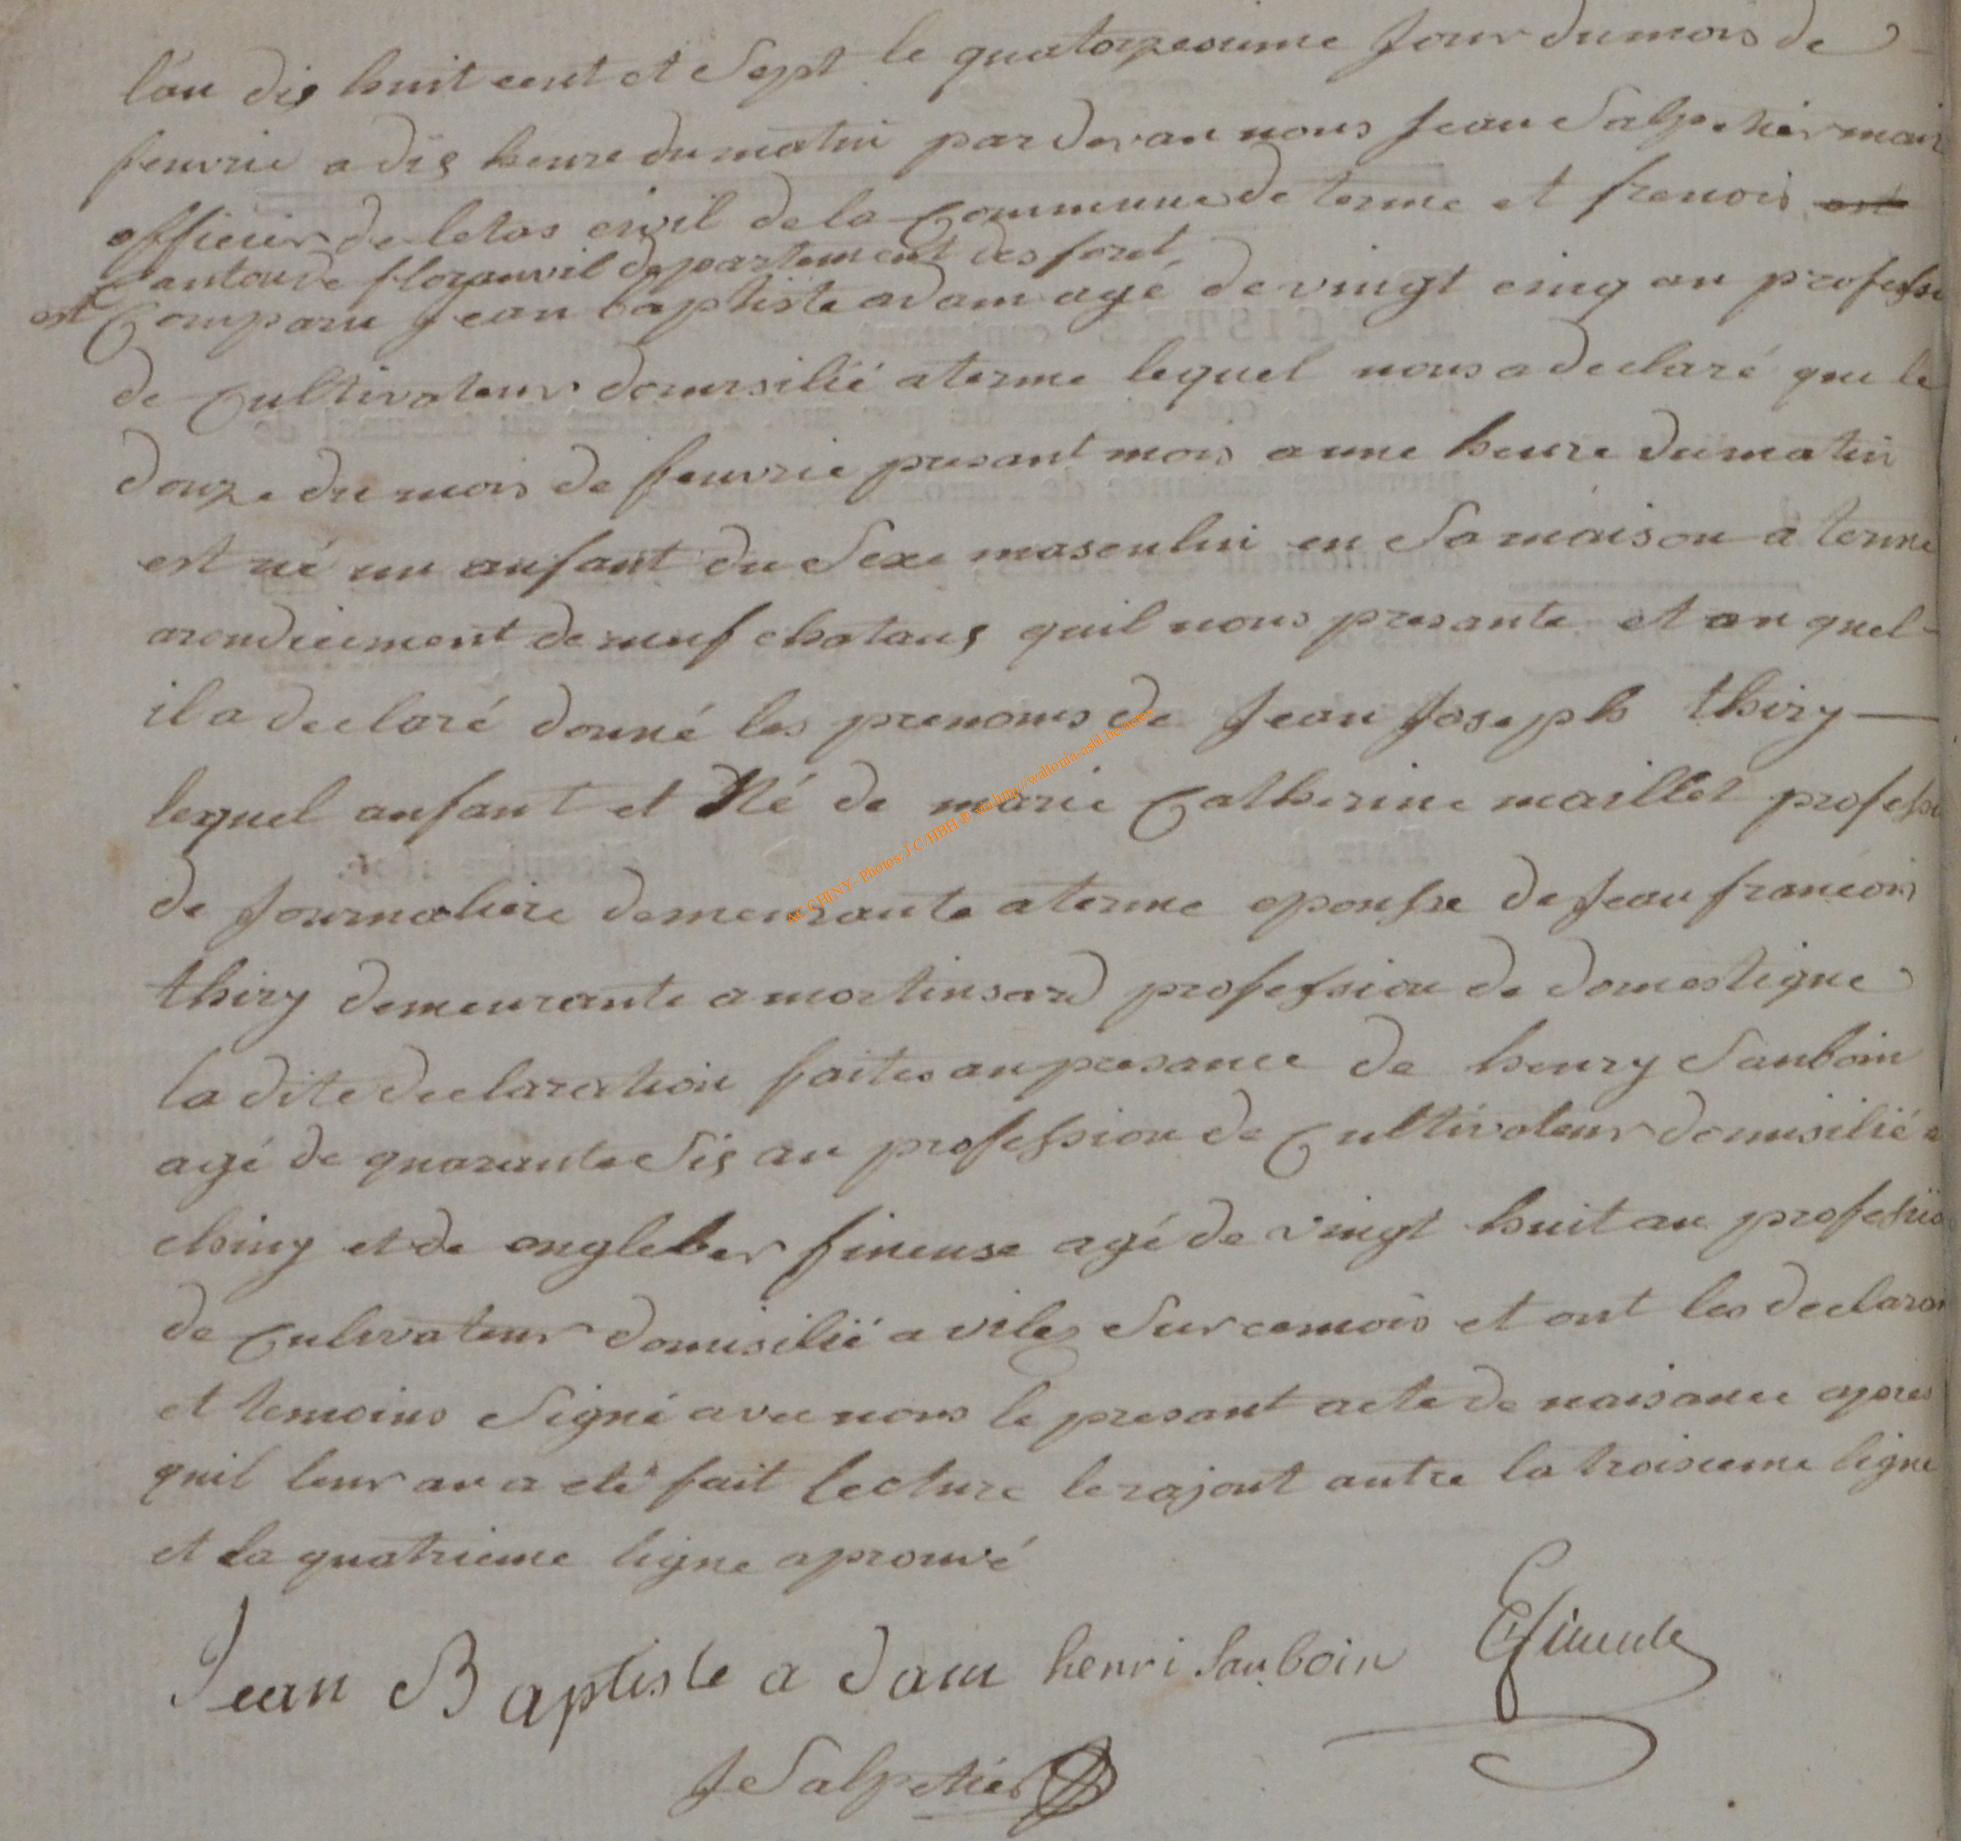 lan dis huit cent et Sept le quatorzesieme Jour du mois de
feuvrie a dis heure du matin par devan nous Jean Salpetier mair
officier de letas civil de la Commune de terme et frenois est
Canton de floranvil departement des foret
est Comparu Jean baptiste adam agé de vingt cinq an professi
de Cultivateur domisilié a terme lequel nous a declaré que le
douze du mois de feuvrie presant mois a une heure du matin
est né un anfant du Sexe masculin en Sa maison a terme
arondicement de neuf chataus quil nous presante et au quel
il a declaré donné les prenoms de Jean Joseph thiry
lequel anfant et Né de marie Catherine maillet professi
de Journaliere demeurante a terme epousse de Jean francois
thiry demeurante a martinsard profession de domestique
la dite declaration faites an presance de henry Sauboin
agé de quarante Sis an profession de Cultivateur domisilié a
chiny et de engleber fineuse agé de vingt huit an professio
de Culivateur domisilié a viles Sur cemois et ont les declaran
et temoins Signé avec nous le presant acte de naisance apres
quil leur an a eté fait lecture le rajout antre la troisieme ligne
et la quatrieme ligne aprouvé
Jean Baptiste adam henri Sauboin
J Salpetier
AC CHINY - Photos J.C.HBH @ via http://wallonia-asbl.be/actes/